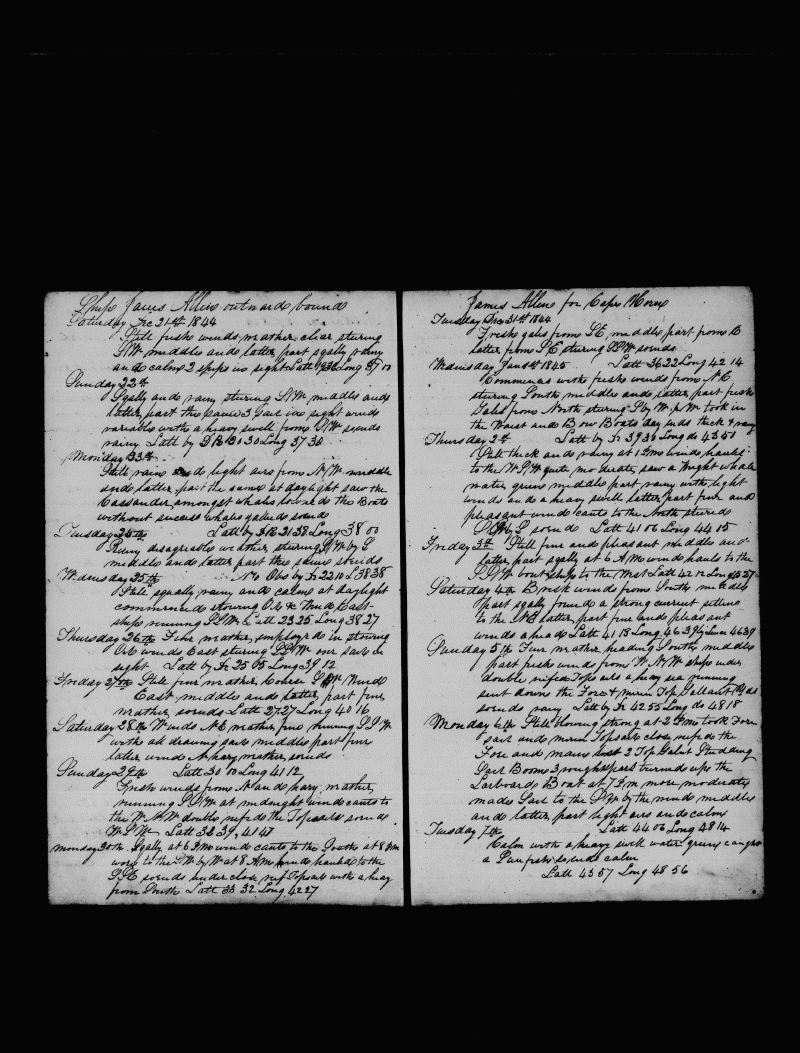 Ship James Allen outward bound
Saturday Dec 21st 1844
Still fresh winds, weather clear stering
SW middle and latter part sqally rainy
and calms 2 ships in sight Latt Long 37 00
Sunday 22th
Sqally and rainy stering SSW middle and
latter part the same 3 Sail in sight winds
variable with a heavy swell from SW so ends
rainy Latt by DR Long 37 30
Monday 23th
Still rain and light airs from middle
and latter part the same at daylight saw the
Cassander amongst whales lowered the Boats
without success whales so ends
Tuesday 24th Latt by DR 21 38 Long 38 00
Rainy disagreable weather stering SW by S
middle and latter part the same so ends
Wednesday 25th No Obs by Dr 22 10 L 38 38
Still sqally rainy and calms at daylight
commenced stowing Oil & wind East
ship running SSW Latt 23 25 Long 38 27
Thursday 26th Fine weather, employed in stowing
Oil winds East stering SSW one sail in
sight Latt by Dr 25 05 Long 39 12
Friday 27th Still fine weather, Course SSW Wind
East middle and latter part fine
weather so ends Latt 27 27 Long 40 16
Saturday 28th Winds NE weather fine running SSW
with all drawing sail middle part fine
latter winds N hazy weather, so ends
Sunday 29th Latt 30 Long 41 12
Fresh winds from N and hazy weather,
running SSW at midnight wind cants to
the WNW double reif'd the Topsails so ends
Latt 33 39, 41 47
Monday 30th Sqally at 6 PM wind cants to the South at 8 PM
wore to the SW by W at 8 AM winds hauled to the
SSE so ends under close reif Topsails with a heavy
from South Latt 33 32 Long 42 27
James Allen for Cape Horn
Tuesday Dec 31st 1844
Fresh gales from SE middle part from E
latter from SE stering SSW so ends
Wednsday Jan 1st 1845 Latt 36 22 Long 42 14
Commences with fresh winds from NE
stering South middle and latter part fresh
Gales from North stering S by W took in
the Waist and Bow Boats day ends thick & rainy
Thursday 2th Latt by Dr 39 30 Long do 43 51
Still thick and rainy at 1 PM winds hauls
to the WSW quite moderate, saw a right whale
water green middle part rainy with light
winds and a heavy swell latter part fine and
pleasant wind cants to the North stered
so ends Latt 41 06 Long 44 15
Friday 3th Still fine and pleasant middle and
latter part sqally at 6 AM wind hauls to the
SSW bout ship to the West Latt 42 12 Long
Saturday 4th Brisk winds from South middle
part sqally found a strong current setting
to the NE latter part fine and pleasant
winds ahead Latt 41 13 Long 46 39 by Luner 46 39
Sunday 5th Fine weather heading South middle
part fresh winds from WNW ships under
double reif'd Topsails a heavy sea running
sent down the Fore & Mizen Top Gallant Yards
so ends rainy Latt by Dr 42 55 Long do 48 18
Monday 6th Still blowing strong at 2 PM took Fore
sail and mizen Topsail close reif'd the
Fore and main lost 2 Top Galnt Studding
Sail Booms 3 rough spars turned up the
Larboard Boat at 7 PM more moderate
made Sail to the by the wind middle
and latter part light airs and calms
Tuesday 7th Latt 44 06 Long 48 14
Calm with a heavy swell water green caught
a Sun fish so ends calm
Latt 43 57 Long 48 56